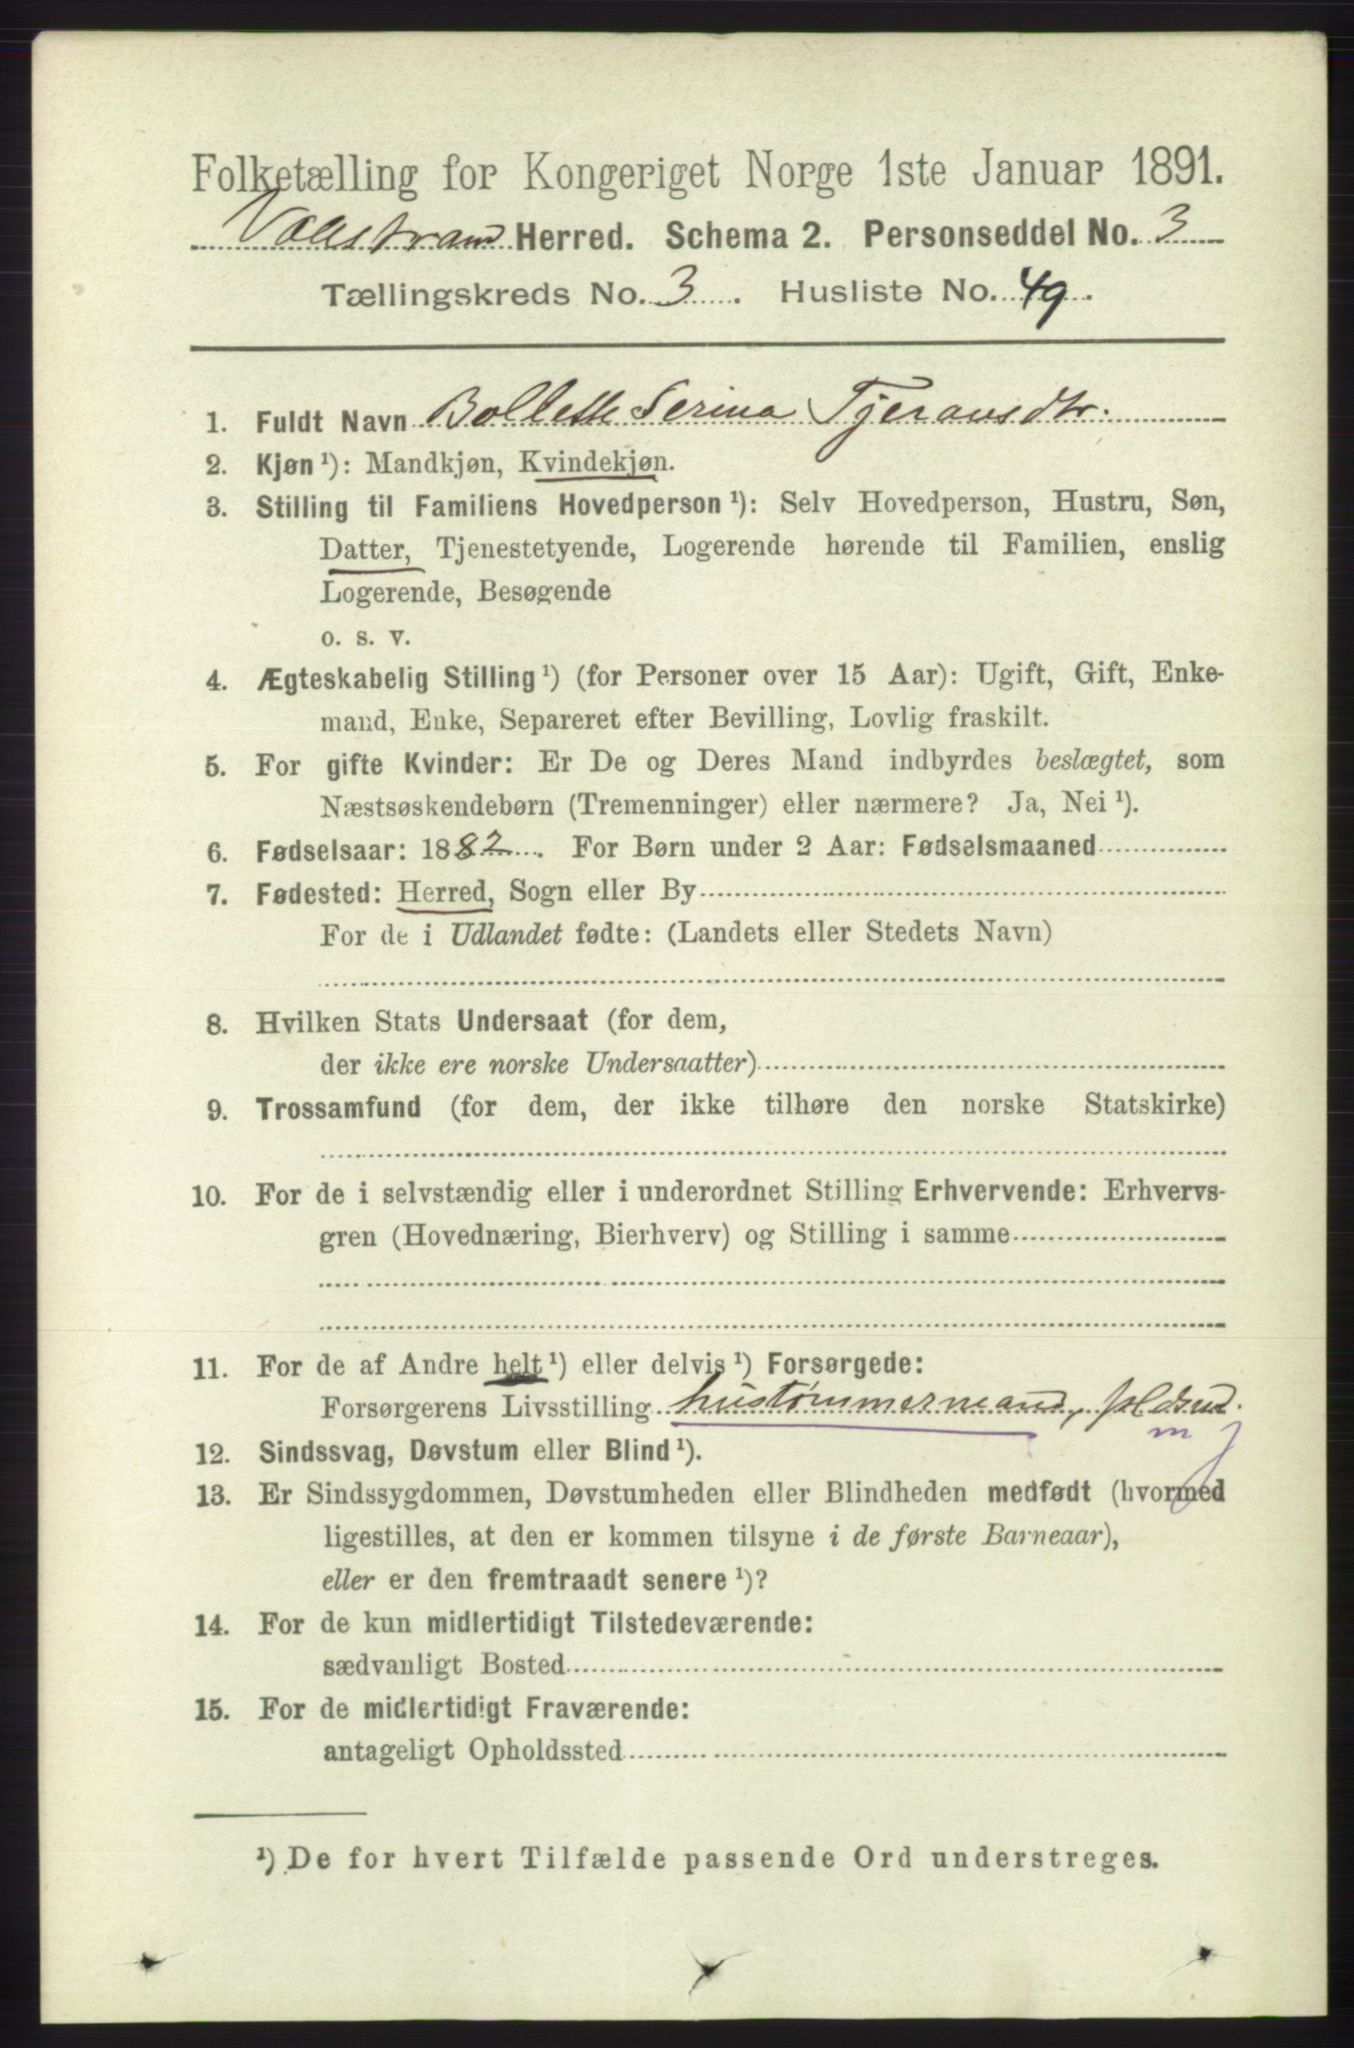 Folketælling for Kongeriget Norge 1ste Januar 1891.
Valestrand Herred. Schema 2. Personseddel No. 3
Tællingskreds No. 3. Husliste No. 49.
1. Fuldt Navn Bollette Serina Tjeransdtr.
2. Kjøn ¹): Mandkjøn, Kvindekjøn.
3. Stilling til Familiens Hovedperson ¹): Selv Hovedperson, Hustru, Søn,
Datter, Tjenestetyende, Logerende hørende til Familien, enslig
Logerende, Besøgende
o. s. v.
4. Ægteskabelig Stilling ¹) (for Personer over 15 Aar): Ugift, Gift, Enke-
mand, Enke, Separeret efter Bevilling, Lovlig fraskilt.
5. For gifte Kvinder: Er De og Deres Mand indbyrdes beslægtet, som
Næstsøskendebørn (Tremenninger) eller nærmere? Ja, Nei ¹).
6. Fødselsaar: 1882. For Børn under 2 Aar: Fødselsmaaned
7. Fødested: Herred, Sogn eller By
For de i Udlandet fødte: (Landets eller Stedets Navn)
8. Hvilken Stats Undersaat (for dem,
der ikke ere norske Undersaatter)
9. Trossamfund (for dem, der ikke tilhøre den norske Statskirke)
10. For de i selvstændig eller i underordnet Stilling Erhvervende: Erhvervs-
gren (Hovednæring, Bierhverv) og Stilling i samme
11. For de af Andre helt ¹) eller delvis ¹) Forsørgede:
Forsørgerens Livsstilling hustømmermand,
12. Sindssvag, Døvstum eller Blind ¹).
13. Er Sindssygdommen, Døvstumheden eller Blindheden medfødt (hvormed
ligestilles, at den er kommen tilsyne i de første Barneaar),
eller er den fremtraadt senere ¹)?
14. For de kun midlertidigt Tilstedeværende:
sædvanligt Bosted
15. For de midlertidigt Fraværende:
antageligt Opholdssted
¹) De for hvert Tilfælde passende Ord understreges.